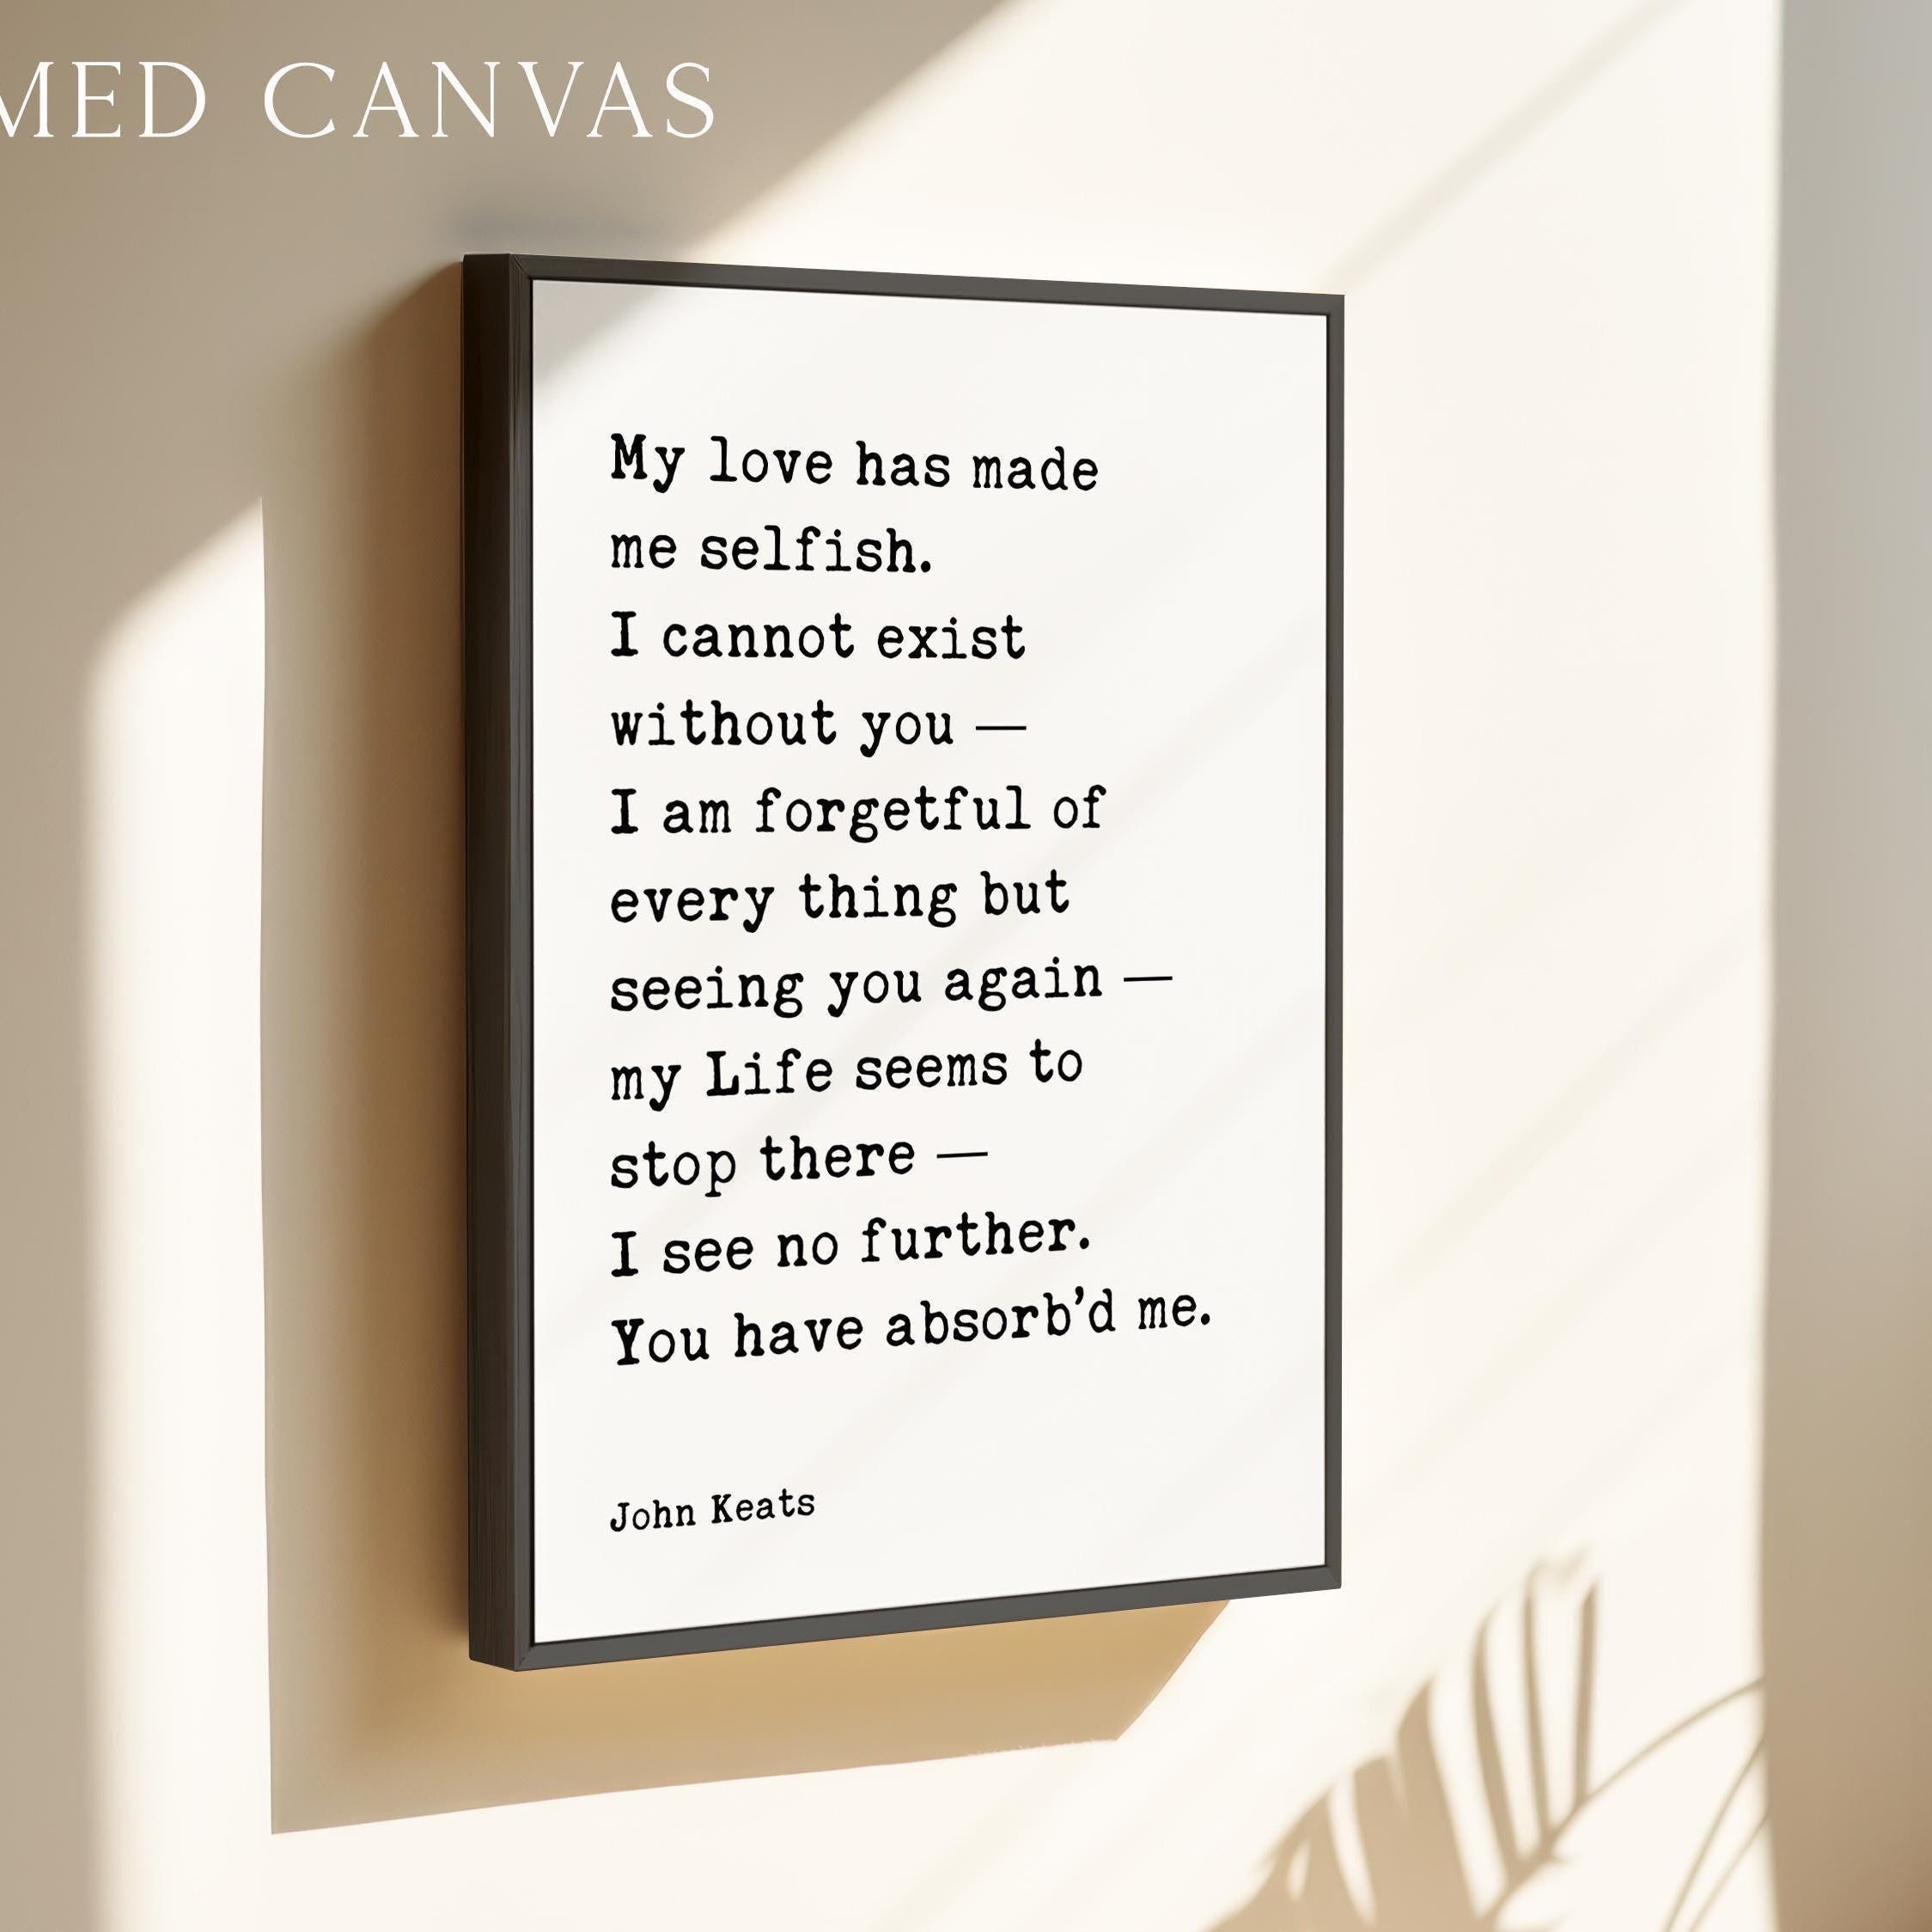 MED CANVAS
My love has made
me selfish.
I cannot exist
without you —
I am forgetful of
every thing but
seeing you again —
my Life seems to
stop there —
I see no further.
You have absorb’d me.
John Keats